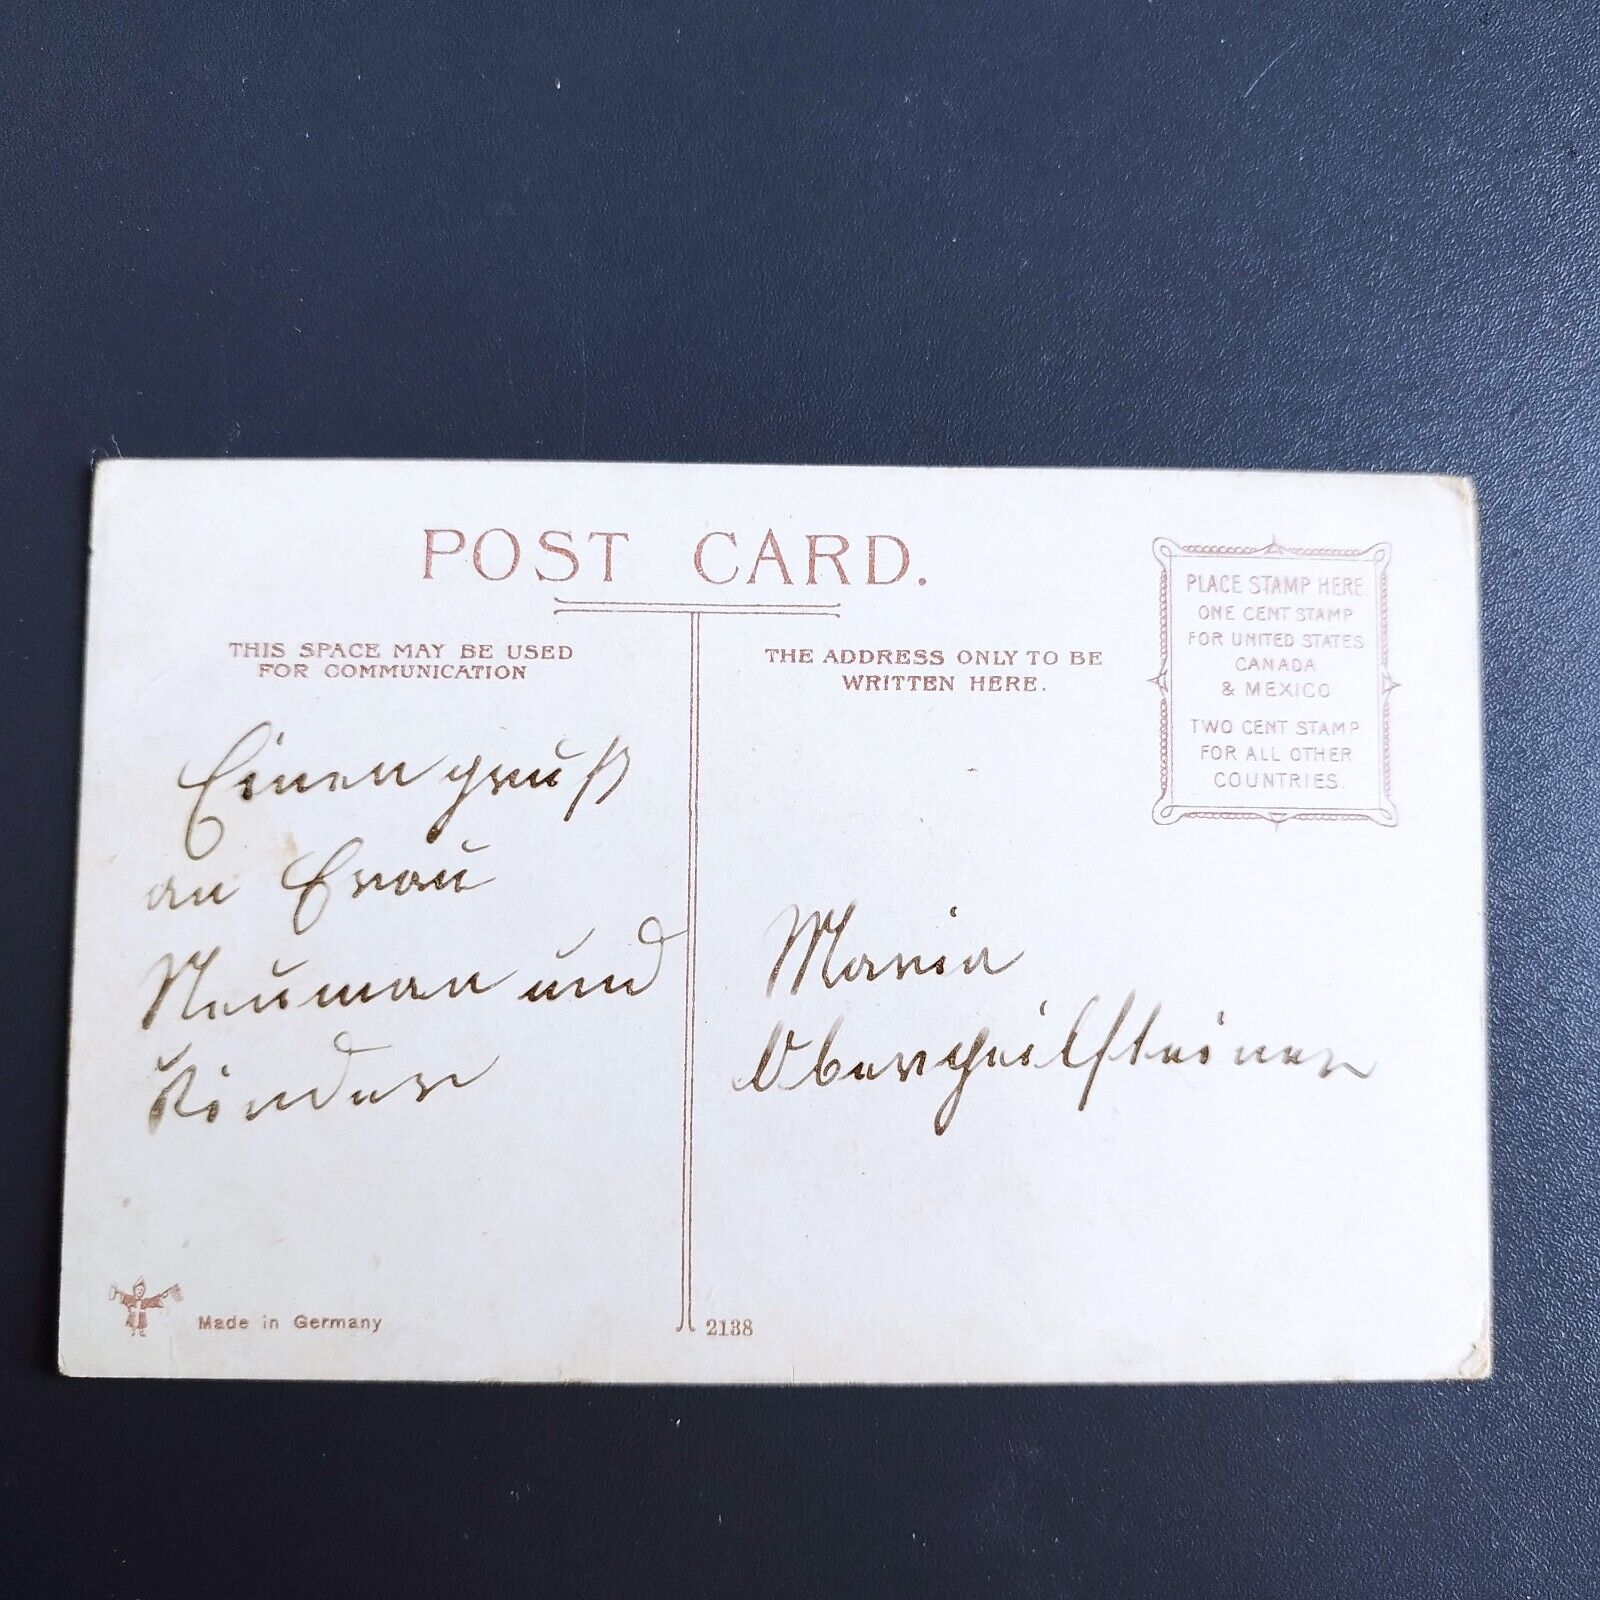 POST CARD.
THIS SPACE MAY BE USED
FOR COMMUNICATION
THE ADDRESS ONLY TO BE
WRITTEN HERE.
PLACE STAMP HERE
ONE CENT STAMP
FOR UNITED STATES
CANADA
& MEXICO
TWO CENT STAMP
FOR ALL OTHER
COUNTRIES.
Einen gruß
an Frau
Neuman und
Kinder
Maria
Made in Germany
2138